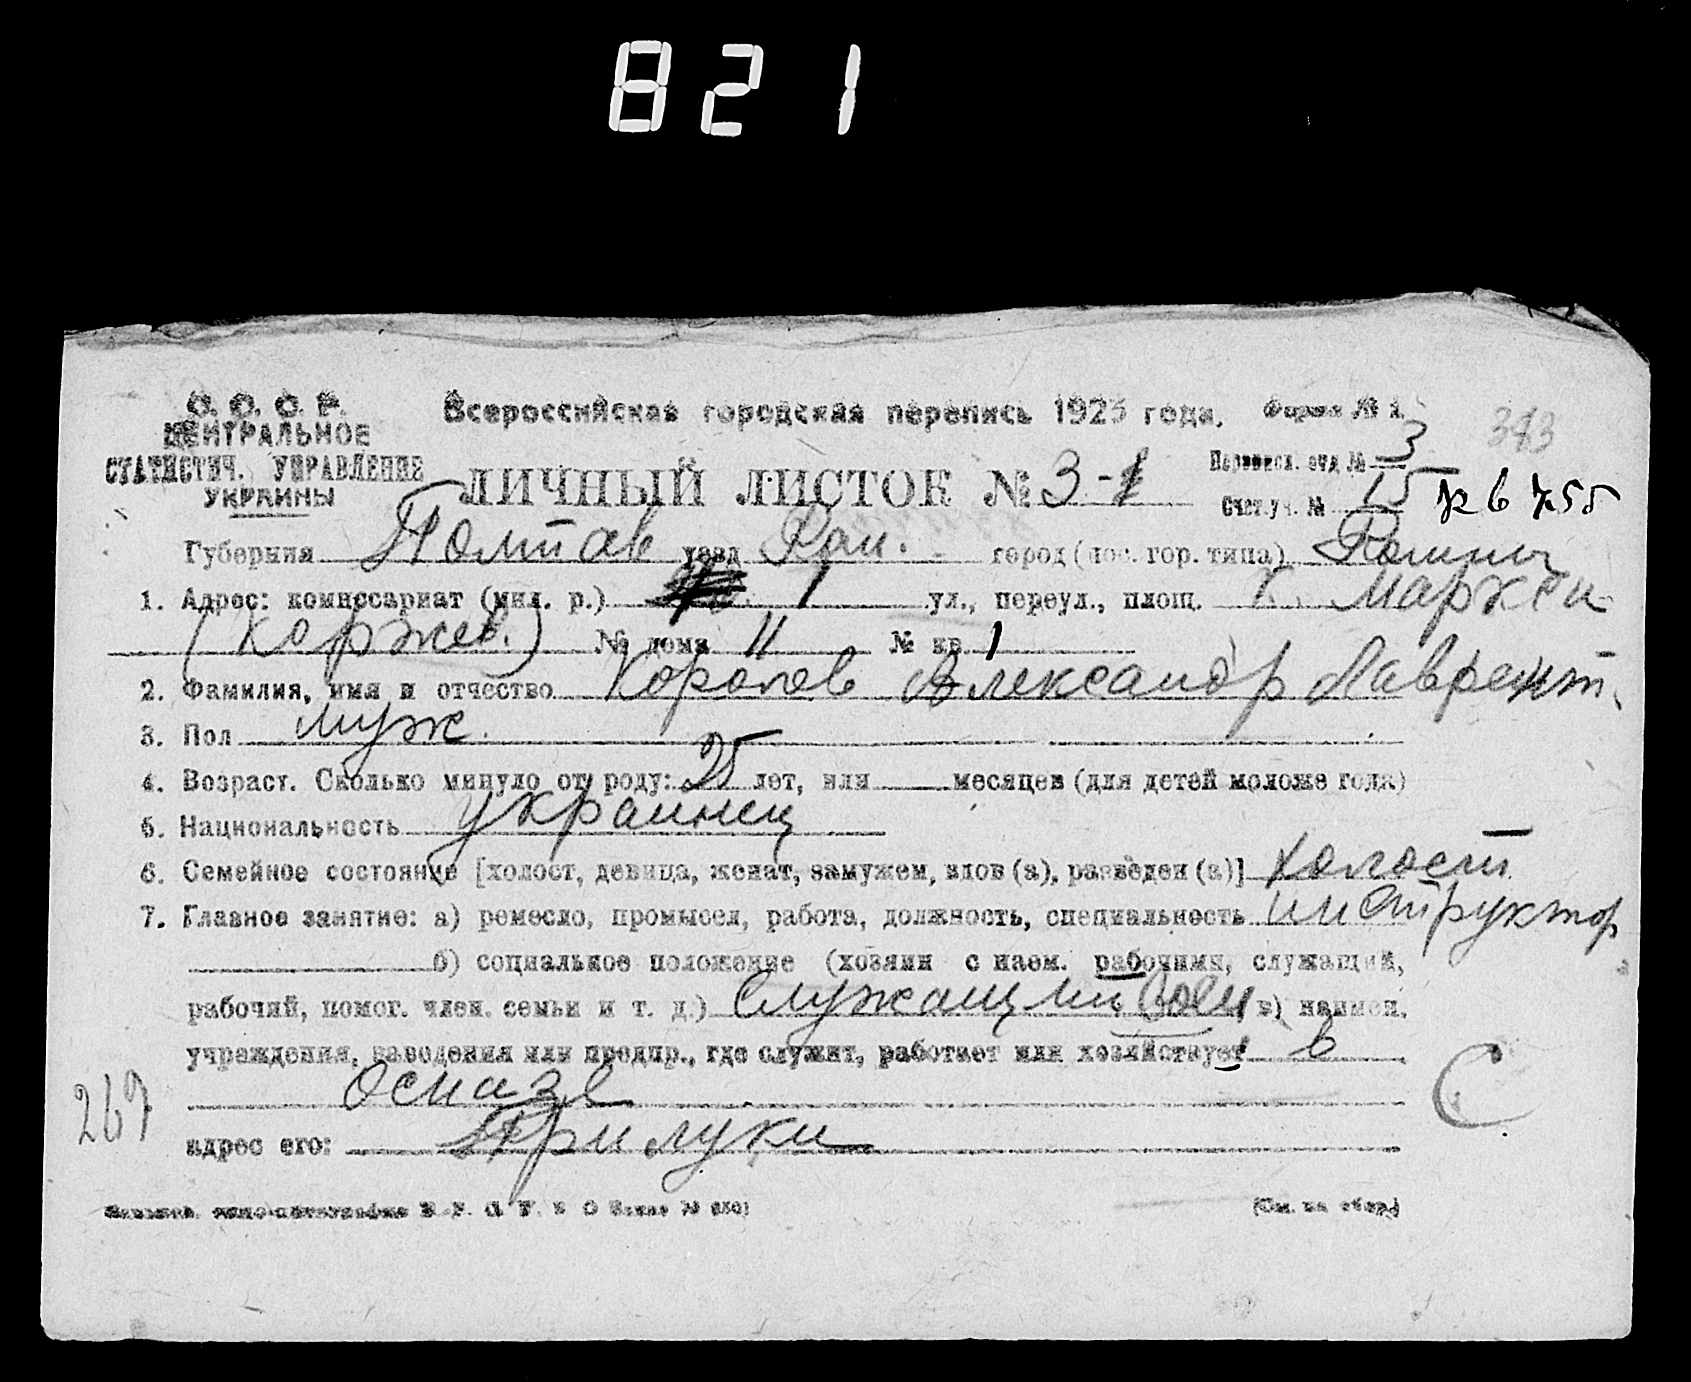 821
С. С. С. Р.
ЦЕНТРАЛЬНОЕ
СТАТИСТИЧ. УПРАВЛЕНИЕ
УКРАИНЫ
Всероссийская городская перепись 1923 года. Форма № 1
343
ЛИЧНЫЙ ЛИСТОК № 3-1
Переписн. отд № 3
Счетн.уч. № 15
Губерния Полтав уезд Ром. город (пос. гор. типа) Ромны
1. Адрес: комиссариат (мил. р.) 1 ул., переул., площ. К. Маркса
(Коржев.) № дома 11 № кв. 1
2. Фамилия, имя и отчество Королев Александр Лаврент.
3. Пол муж.
4. Возраст. Сколько минуло от роду: 25 лет, или месяцев (для детей моложе года)
5. Национальность украинец
6. Семейное состояние [холост, девица, женат, замужем, вдов (а), разведен (а)] холост
7. Главное занятие: а) ремесло, промысел, работа, должность, специальность инструктор
б) социальное положение (хозяин с наем. рабочими, служащий,
рабочий, помог. член. семьи и т. д.) Служащий в) наимен.
учреждения, заведения или предпр., где служит, работает или хозяйствует в
осназе
267
С
адрес его: Прилуки
(См. на обор.)